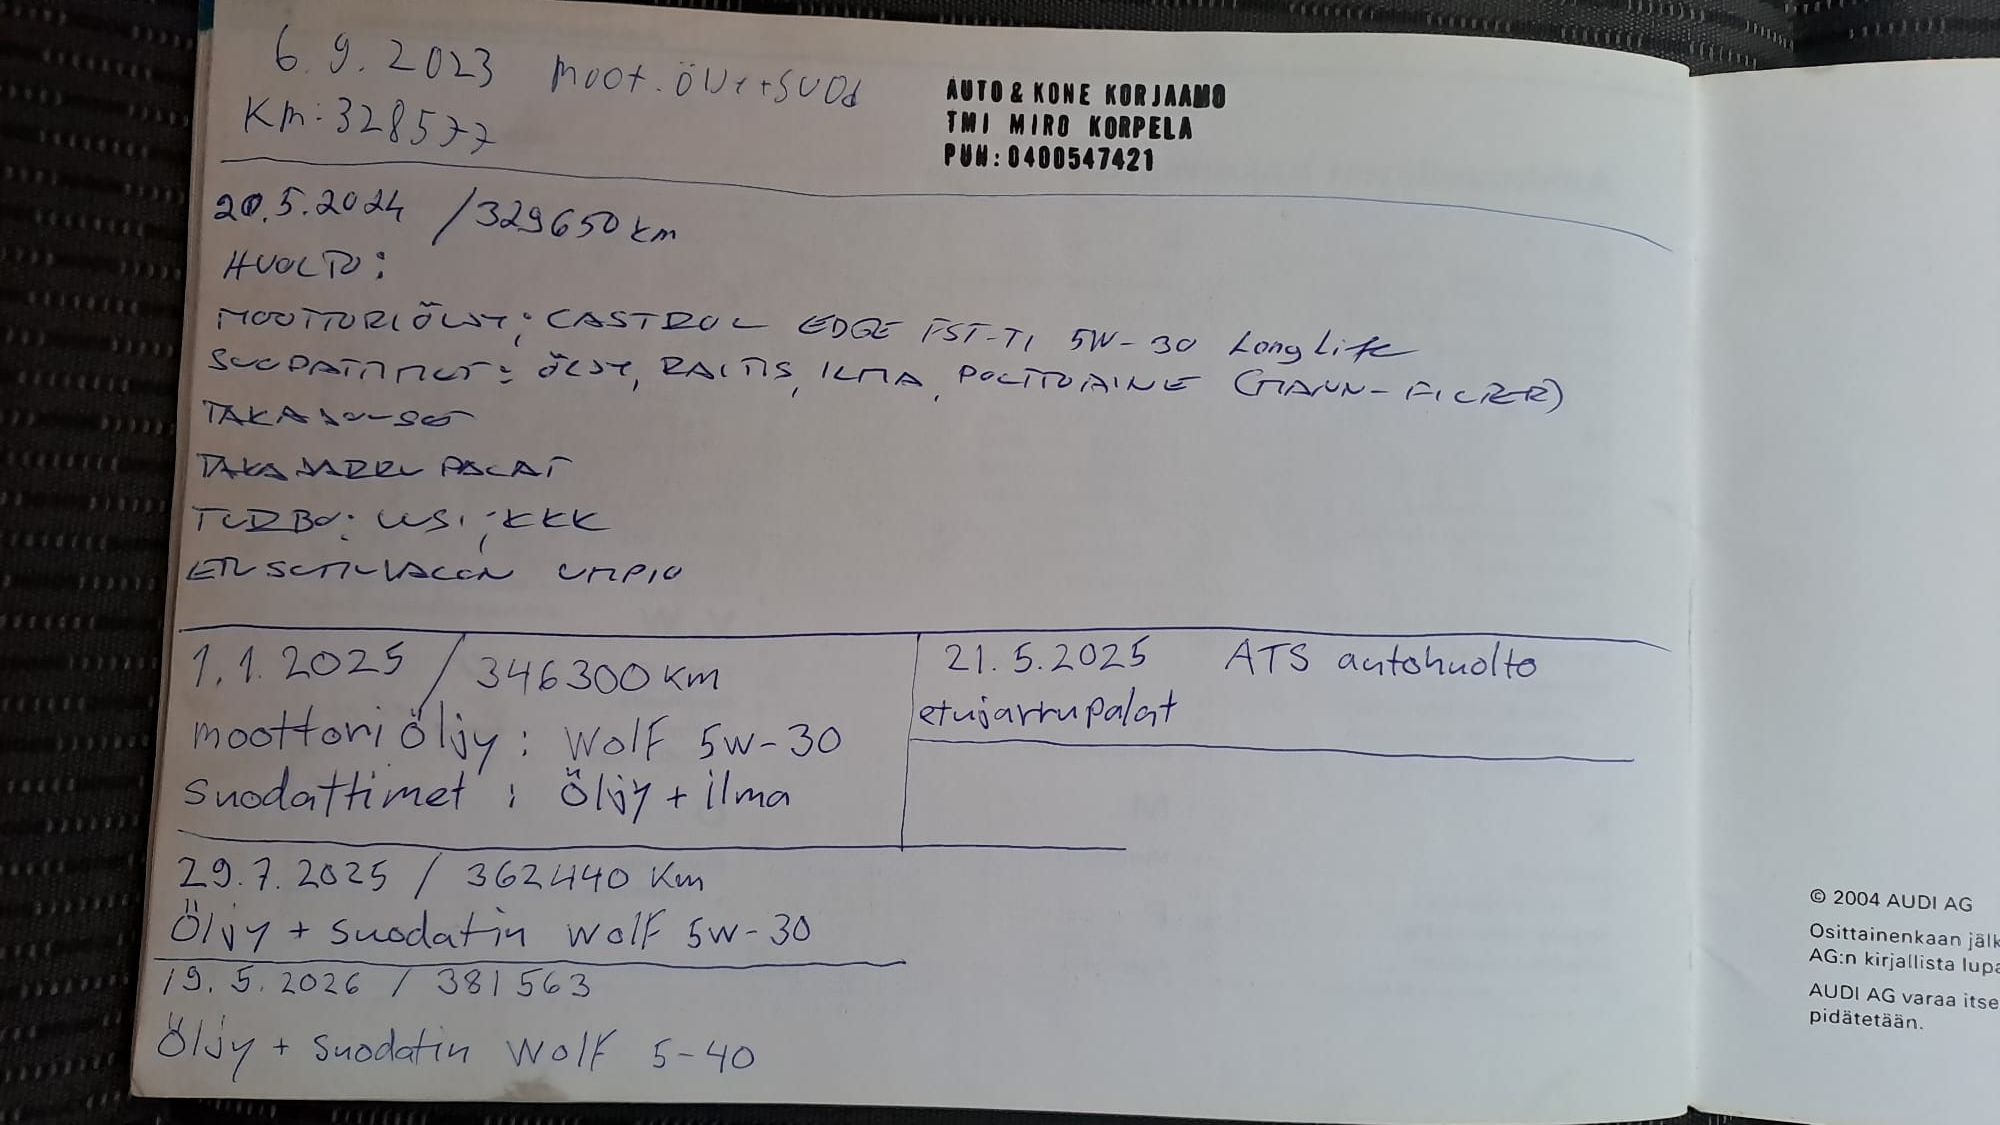 6.9.2023 moot.öljy+suod
Km:328577
AUTO & KONE KORJAAMO
TMI MIRO KORPELA
PUH:0400547421
20.5.2024 / 329650 km
HUOLTO:
MOOTTORIÖLJY: CASTROL EDGE FST-TI 5W-30 LongLife
SUODATTIMET: ÖLJY, RAITIS, ILMA, POLTTOAINE (MANN-FILTER)
TAKAJOUSET
TAKAJARRUPALAT
TURBO: UUSI, KKK
ETUSUTIUKACON UMPIO
1.1.2025 / 346300 km
moottoriöljy: Wolf 5w-30
suodattimet: Öljy + ilma
21.5.2025 ATS autohuolto
etujarrupalat
29.7.2025 / 362440 Km
Öljy + suodatin Wolf 5w-30
19.5.2026 / 381563
Öljy + suodatin Wolf 5-40
© 2004 AUDI AG
Osittainenkaan jälk
AG:n kirjallista lupa
AUDI AG varaa itse
pidätetään.